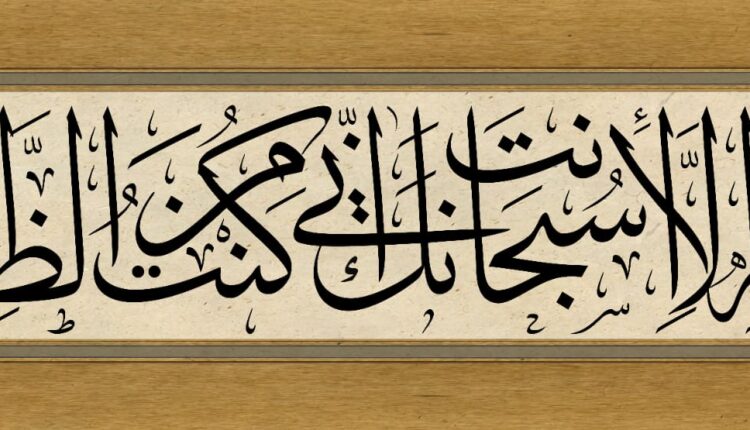 إِلَّا أَنتَ سُبْحَانَكَ إِنِّي كُنتُ مِنَ